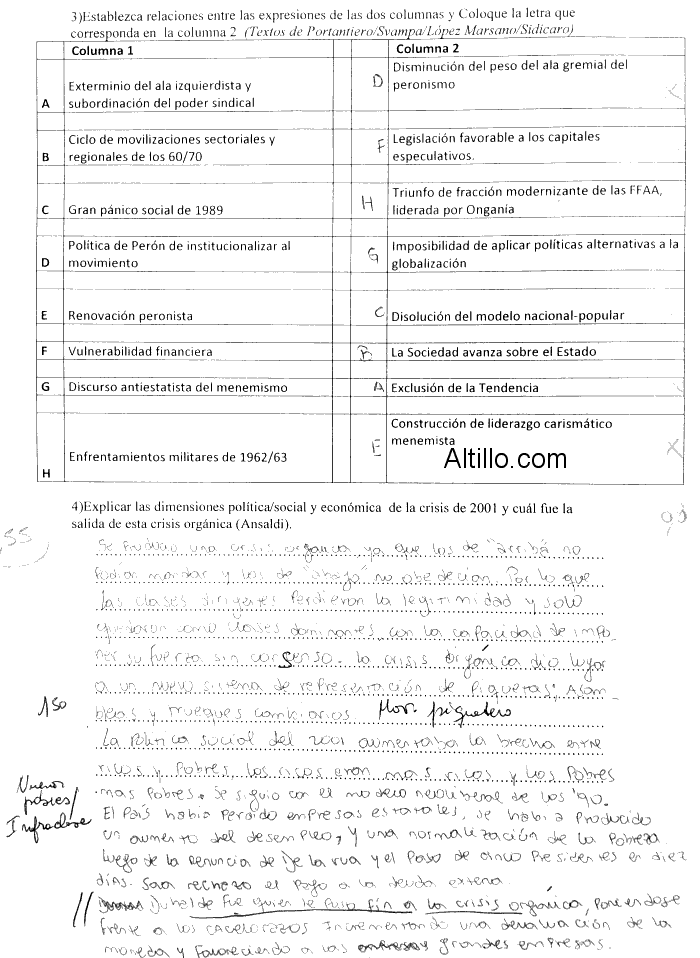 3)Establezca relaciones entre las expresiones de las dos columnas y Coloque la letra que
corresponda en la columna 2 (Textos de Portantiero/Svampa/López Marsano/Sidicaro)
Columna 1 Columna 2
A Exterminio del ala izquierdista y subordinación del poder sindical D Disminución del peso del ala gremial del peronismo
B Ciclo de movilizaciones sectoriales y regionales de los 60/70 F Legislación favorable a los capitales especulativos.
C Gran pánico social de 1989 H Triunfo de fracción modernizante de las FFAA, liderada por Onganía
D Política de Perón de institucionalizar al movimiento G Imposibilidad de aplicar políticas alternativas a la globalización
E Renovación peronista C Disolución del modelo nacional-popular
F Vulnerabilidad financiera B La Sociedad avanza sobre el Estado
G Discurso antiestatista del menemismo A Exclusión de la Tendencia
H Enfrentamientos militares de 1962/63 E Construcción de liderazgo carismático menemista
Altillo.com
4)Explicar las dimensiones política/social y económica de la crisis de 2001 y cuál fue la
salida de esta crisis orgánica (Ansaldi).
Se produjo una crisis organica ya que los de "arriba no
podian mandar y los de "abajo" no obedecian. Por lo que
las clases dirigentes Perdieron la legitimidad y solo
quedaron como clases dominantes, con la capacidad de impo-
ner su fuerza sin consenso. La crisis orgánica dio lugar
a un nuevo sistema de representación de Piqueteros, Asam-
bleas y trueques Mov. piquetero
La Politica social del 2001 aumentaba la brecha entre
ricos y Pobres, los ricos eran mas ricos y los Pobres
mas Pobres. Se siguio con el modelo neoliberal de los '90.
Nuevos
pobres/
Infraclase
El País habia Perdido empresas estatales, se habia Producido
un aumento del desempleo, y una normalización de la Pobreza.
Luego de la renuncia de De la rua y el Paso de cinco Presidentes en diez
días. Saa rechazo el Pago a la deuda externa.
Duhalde fue quien le Puso fin a la crisis orgánica, Poniendose
frente a los cacelorazos Incrementando una devaluación de la
moneda y Favoreciendo a las grandes empresas.